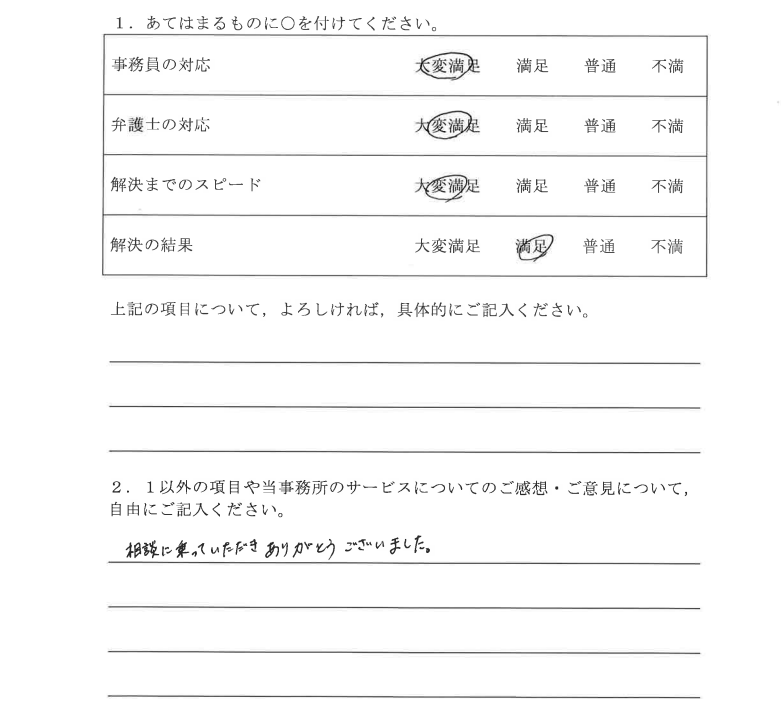 １．あてはまるものに○を付けてください。
事務員の対応 大変満足 満足 普通 不満
弁護士の対応 大変満足 満足 普通 不満
解決までのスピード 大変満足 満足 普通 不満
解決の結果 大変満足 満足 普通 不満
上記の項目について，よろしければ，具体的にご記入ください。
２．１以外の項目や当事務所のサービスについてのご感想・ご意見について，
自由にご記入ください。
相談に乗っていただきありがとうございました。